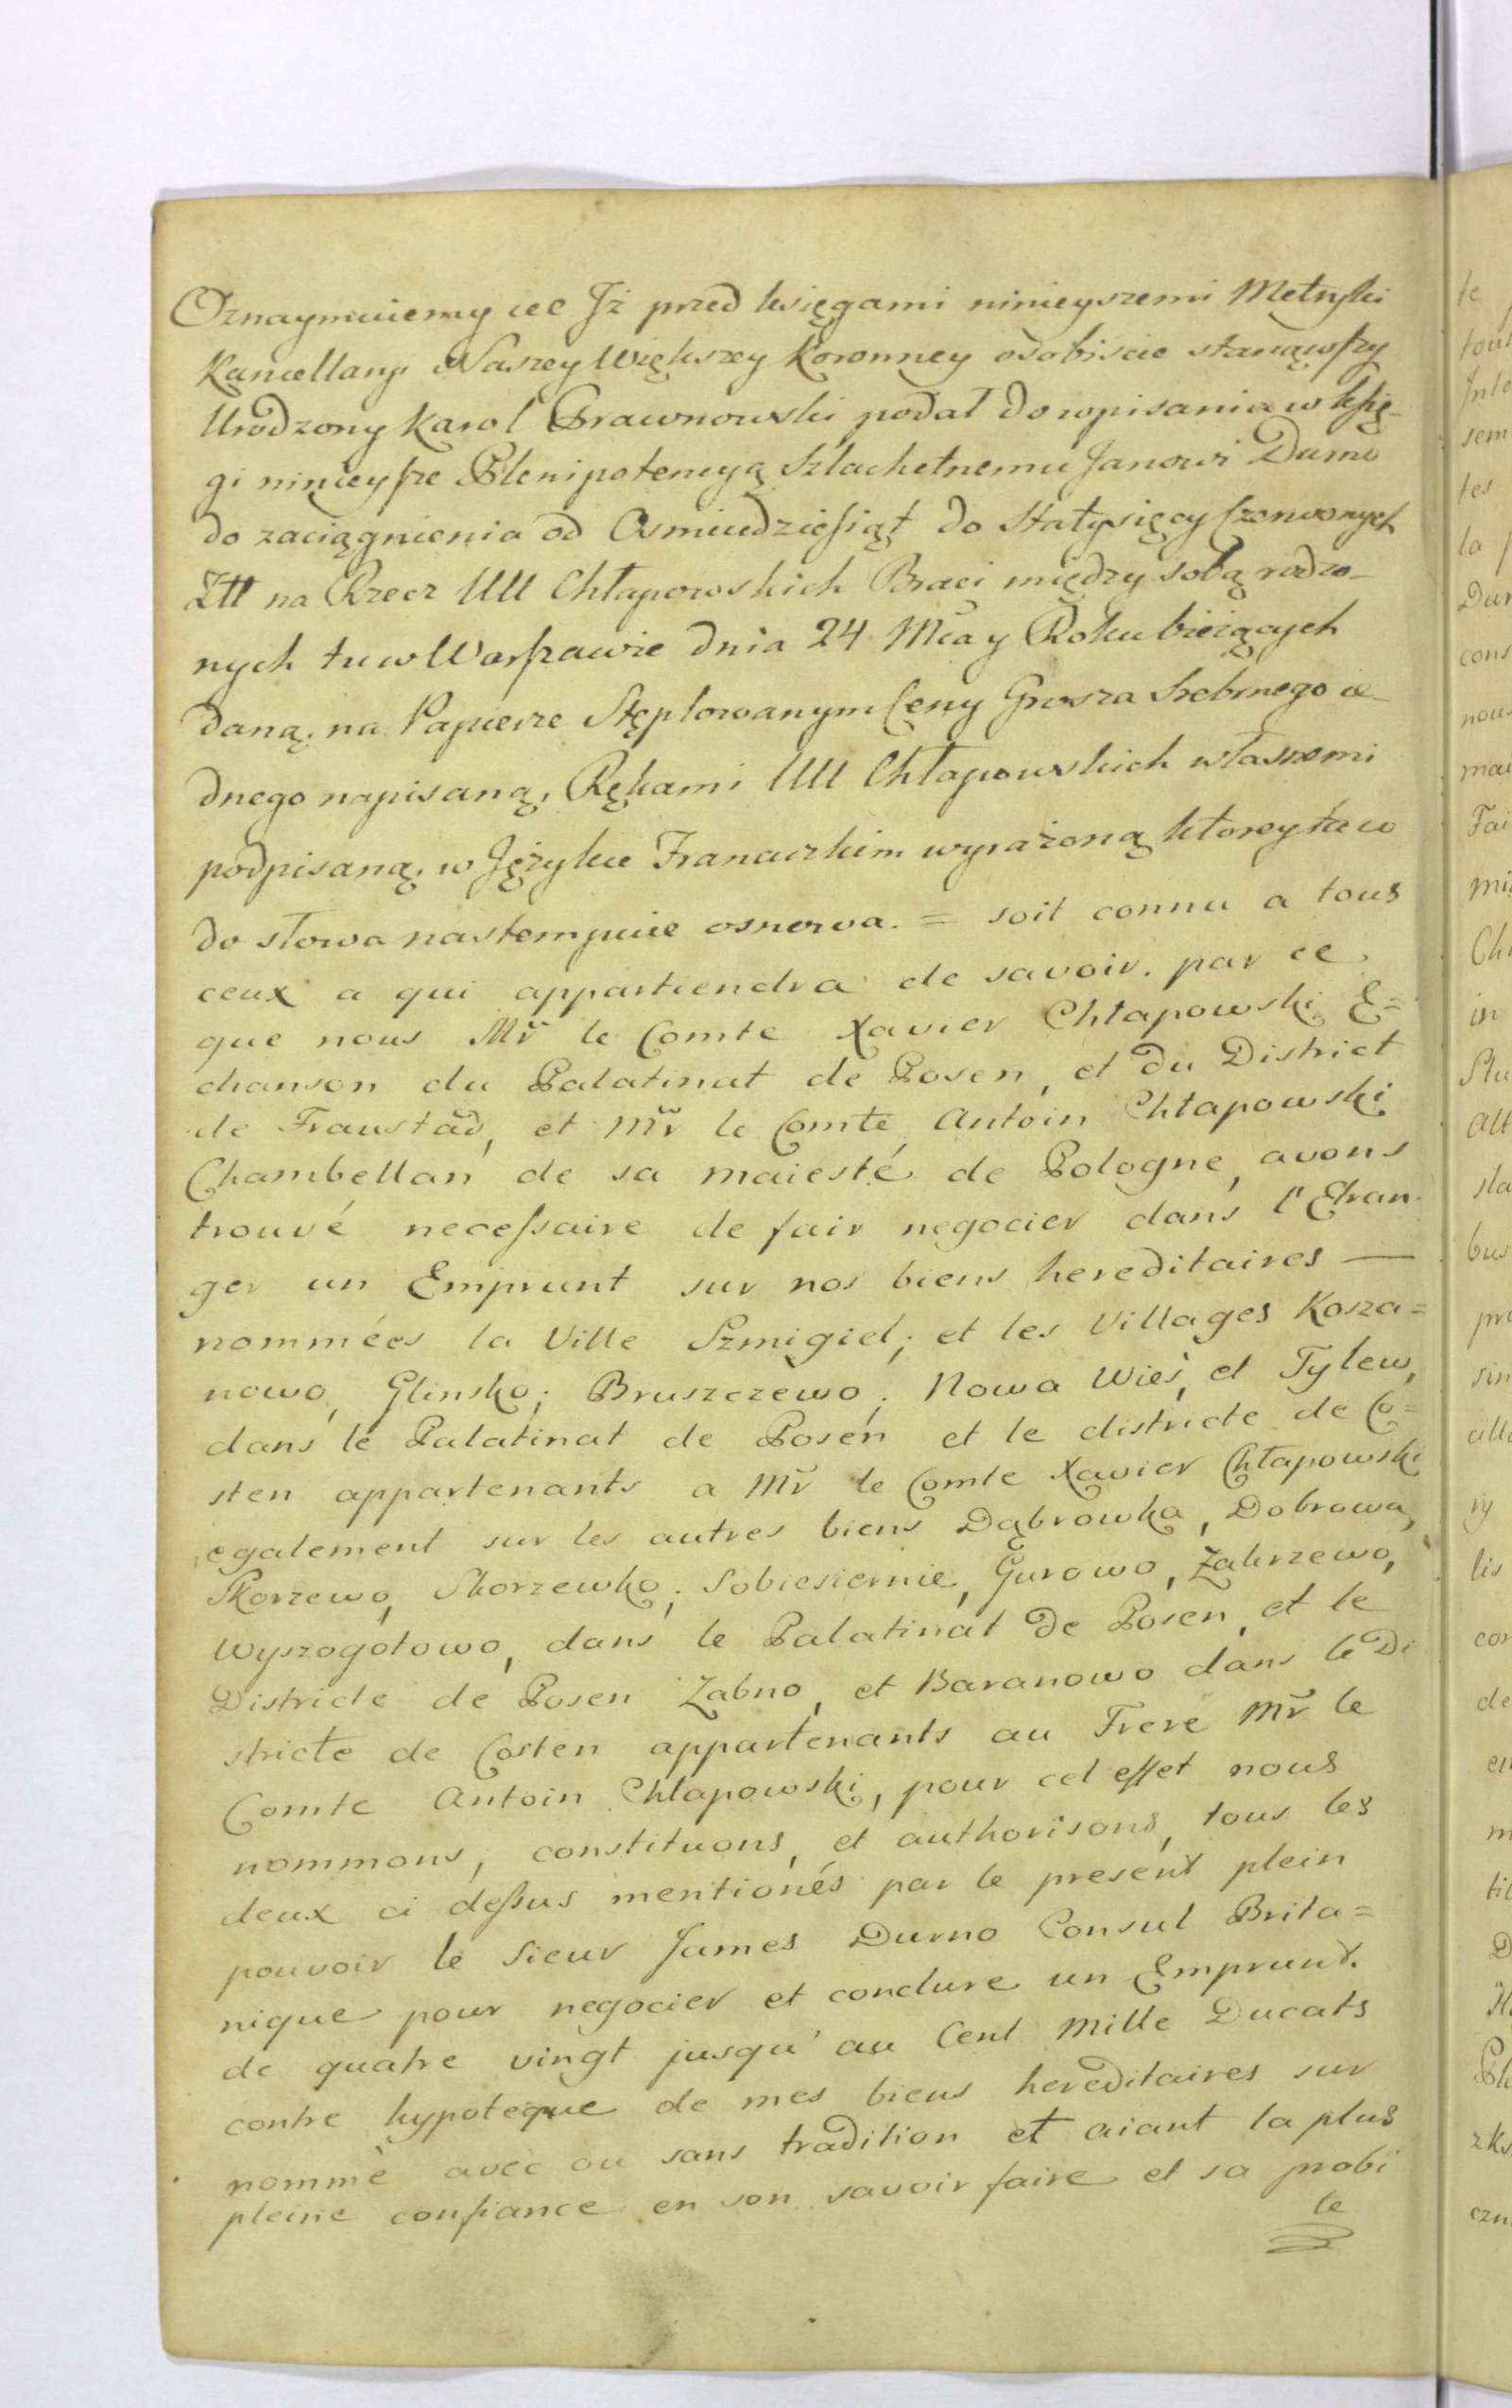 Oznaymuiemy etc Jż przed księgami ninieyszemi Metryki
Kancellaryi Naszey Większey Koronney osobiscie stanąwszy
Urodzony Karol Prawnowski podał do wpisania w księ-
gi ninieysze Plenipotencyą Szlachetnemu Janowi Durno
do zaciągnienia od Osmiudziesiąt do Statysięcy Czerwonych
Ztt na Rzecz UU Chłapowskich Braci między sobą rodzo-
nych tu w Warszawie dnia 24 Mca y Roku bieżących
daną, na Papierze Stęplowanym Ceny Grosza Srebrnego ie-
dnego napisaną, Rękami UU Chłapowskich własnemi
podpisaną, w Języku Francuzkim wyrażoną ktorey ta co
do słowa nastempuie osnowa. = soit connu a tous
ceux a qui appartiendra de savoir. par ce
que nous Mr le Comte Xavier Chłapowski E=
chanson du Palatinat de Posen, et du District
de Fraustad, et Mr le Comte Antoin Chłapowski
Chambellan de sa maiesté de Pologne, avons
trouvé necessaire de fair negocier dans l'Etran-
ger un Emprunt sur nos biens hereditaires —
nommées la Ville Szmigiel; et les Villages Kosza=
nowo, Glinsko; Bruszczewo; Nowa Wieś, et Tylew,
dans le Palatinat de Posen et le districte de Co=
sten appartenants a Mr le Comte Xavier Chłapowski
egalement sur les autres biens Dąbrowka, Dobrowa,
Skorzewo, Skorzewko; Sobiesiernie, Gurowo, Zakrzewo,
Wyszogotowo, dans le Palatinat de Posen, et le
Districte de Posen Zabno, et Baranowo dans le Di
stricte de Costen appartenants au Frere Mr le
Comte Antoin Chłapowski, pour cet effet nous
nommons, constituons, et authorisons, tous les
deux ci dessus mentionés par le present plein
pouvoir le Sieur James Durno Consul Brita=
nique pour negocier et conclure un Emprunt.
de quatre vingt jusqu' au Cent Mille Ducats
contre hypoteque de mes biens hereditaires sur
nommè avec ou sans tradition et aiant la plus
pleine confiance en son savoir faire et sa probi
te